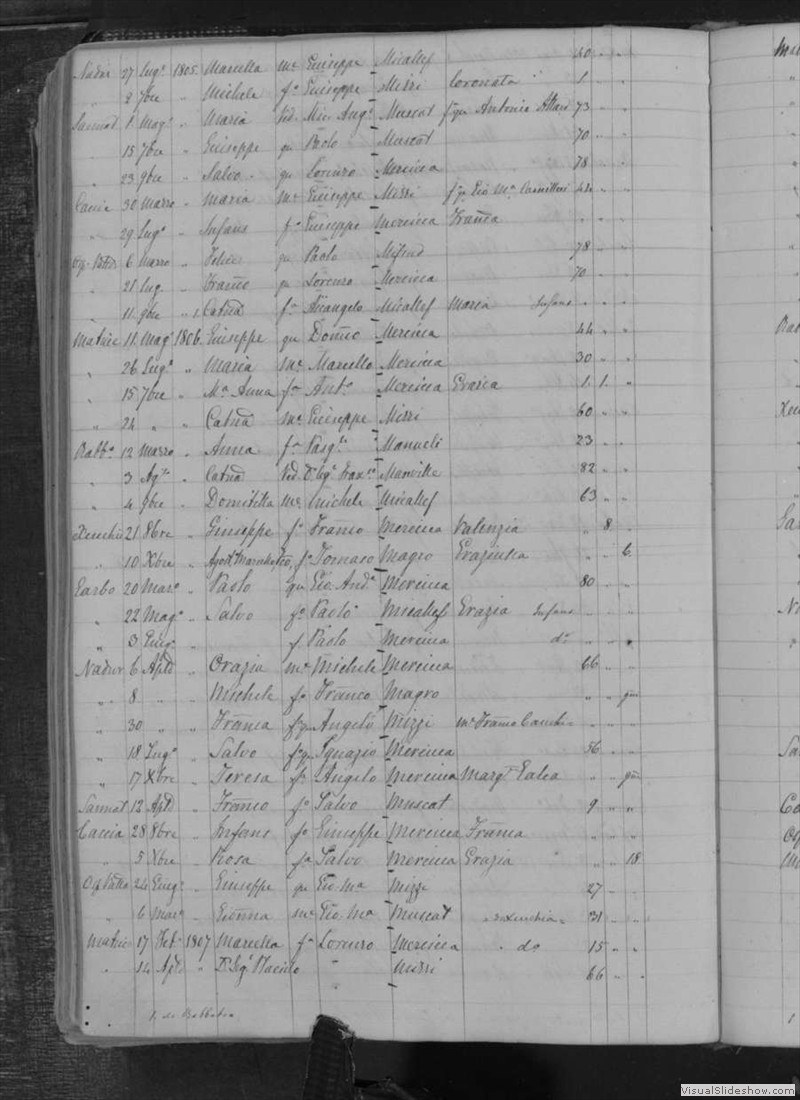 Nadur 27 Lugo 1805 Marcella me Giuseppe Micallef 50 " "
" 2 7bre " Michele fo Giuseppe Mizzi Coronata 1 " "
Sannat 1 Mago " Maria Ved. Mic. Ango Muscat fa qu Antonio Attard 73 " "
" 15 7bre " Giuseppe qu Paolo Muscat 70 " "
" 23 9bre " Salvo qu Lorenzo Mercieca 78 " "
Caccia 30 Marzo " Maria me Giuseppe Mizzi
" 29 Lugo " Infans fo Giuseppe Mercieca Franca " " "
6 Marzo " Felice qu Paolo Mifsud 78 " "
" 21 Lug " Franco qu Lorenzo Mercieca 70 " "
" 11 9bre " Catna fa Arcangelo Micallef Maria Infans " " "
Matrice 11 Mago 1806 Giuseppe qu Domco Mercieca 44 " "
" 26 Lugo " Maria me Marcello Mercieca 30 " "
" 15 7bre " Ma Anna fa Anto Mercieca Grazia 1 1 "
" 24 " " Catna me Giuseppe Mizzi 60 " "
Rabbo 12 Marzo " Anna fa Pasqle Manueli 23 " "
" 3 Ago " Catna Ved. Manville 82 " "
" 4 9bre " Domitilla me Michele Micallef 63 " "
Xeuchia 21 8bre " Giuseppe fo Franco Mercieca Valenzia " 8 "
" 10 Xbre " fo Tomaso Magro Graziulla " " 6
Garbo 20 Maro " Paolo qu Gio. Anda Mercieca 80 " "
" 22 Mago " Salvo fo Paolo Micallef Grazia Infans " " "
" 3 Giugo f Paolo Mercieca do " " "
Nadur 6 Aple " Orazia me Michele Mercieca 66 " "
" 8 " " Michele fo Franco Magro " " gni
" 30 " " Franca fa qu Angelo Mizzi me Franco " " "
" 18 Lugo " Salvo fo qu Ignazio Mercieca 56 " "
" 17 Xbre " Teresa fa Angelo Mercieca Margta Galea " " gni
Sannat 12 Aple " Franco fo Salvo Muscat 9 " "
Caccia 28 8bre " Infans fo Giuseppe Mercieca Franca " " "
" 5 Xbre " Rosa fa Salvo Mercieca Grazia " " 18
24 Giugo " Giuseppe qu Gio. Ma Mizzi 27 " "
" 6 Maro " Gionna me Gio. Ma Muscat " Xeuchia " 31 " "
Matrice 17 Feb. 1807 Marcella fa Lorenzo Mercieca " do 15 " "
" 14 Aple " Placido " Mizzi 66 " "
VisualSlideshow.com